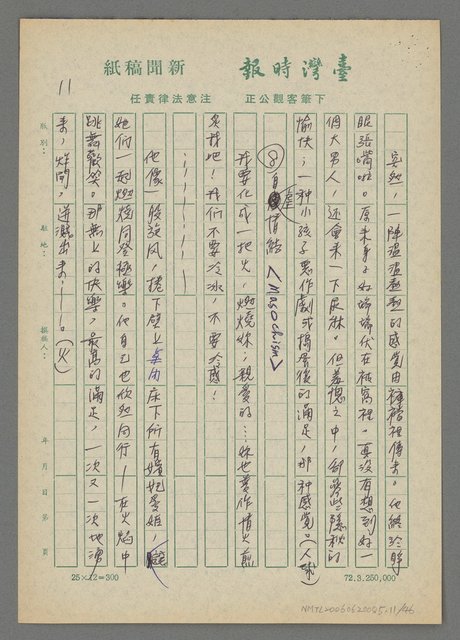 臺灣時報 新聞稿紙
下筆客觀公正 注意法律責任
11
突然,一陣溫溫熱熱的感覺由褲襠裡傳來。他終於睜
眼張嘴啦。原來身子好端端伏在被窩裡。真沒有想到好一
個大男人,還會來一下尿床。但羞愧之中,卻夾些隱秘的
愉快;一種小孩子惡作劇或搗蛋後的滿足,那種感覺。(人球)
⑧自虐情結<Masochism>
我要化成一把火,燃燒妳;親愛的……妳也要作情火煎
炙我吧!我們不要冷冰,不要冷感!
…………
他像一股旋風,捲下壁上 床下所有嬪妃愛姬,
她們一起燃燒同登極樂。他自己也欣然同行——在火焰中
跳舞歡笑。那無上的快樂,最高的滿足,一次又一次地湧
來,炸開,迸濺出來……。(火)
版別: 駐地: 撰稿人: 年 月 日 第 頁
25×12=300
72.3.250,000
NMTL20060620045.11/46